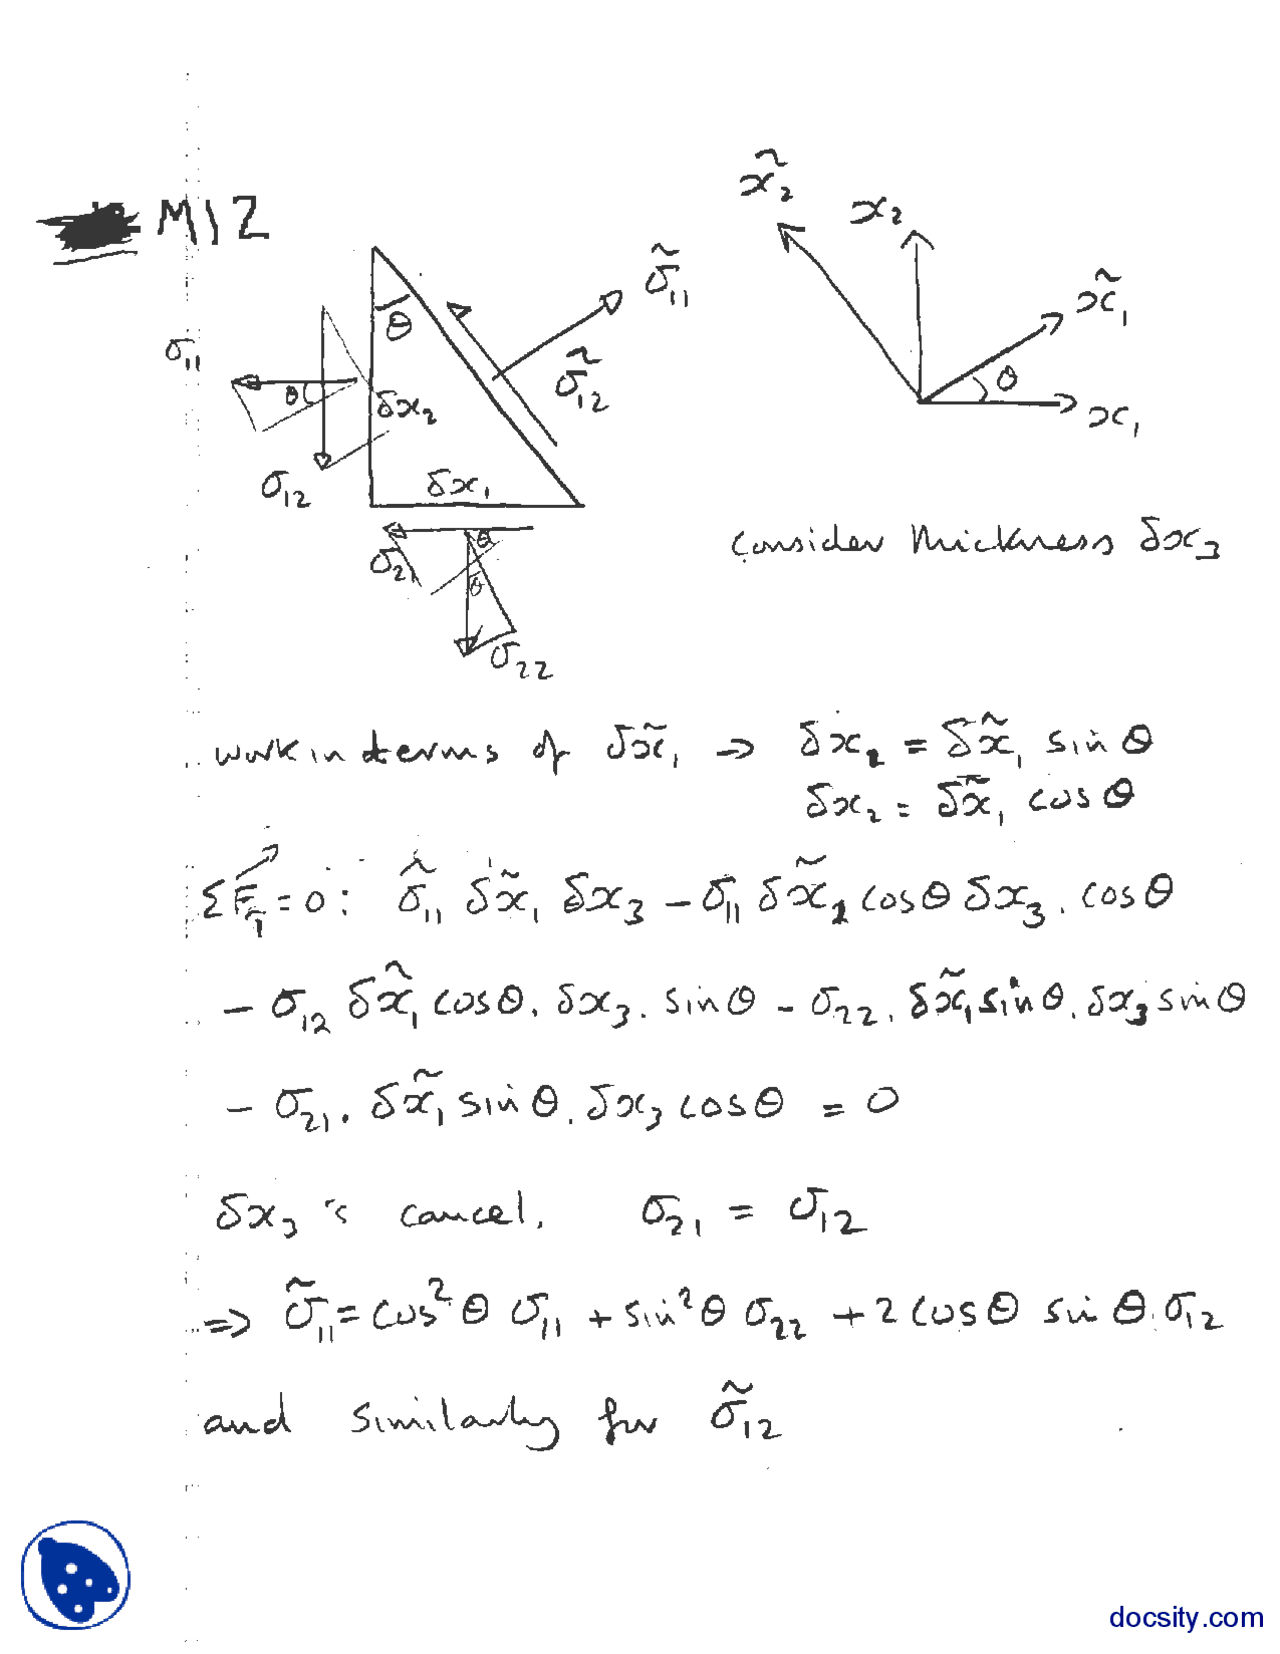 M12
x̃₂
x₂
x̃₁
θ
x₁
σ̃₁₁
σ̃₁₂
θ
σ₁₁
θ
δx₂
σ₁₂
δx₁
σ₂₁
θ
θ
σ₂₂
consider thickness δx₃
work in terms of δx̃₁ → δx₂ = δx̃₁ sin θ
δx₂ = δx̃₁ cos θ
ΣF₁̃ = 0 : σ̃₁₁ δx̃₁ δx₃ - σ₁₁ δx̃₂ cos θ δx₃ . cos θ
- σ₁₂ δx̃₁ cos θ . δx₃ . sin θ - σ₂₂ . δx̃₁ sin θ . δx₃ sin θ
- σ₂₁ . δx̃₁ sin θ . δx₃ cos θ = 0
δx₃'s cancel. σ₂₁ = σ₁₂
⇒ σ̃₁₁ = cos² θ σ₁₁ + sin² θ σ₂₂ + 2 cos θ sin θ . σ₁₂
and similarly for σ̃₁₂
docsity.com